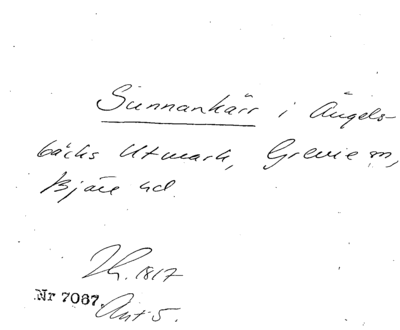 Sunnankärr i Ängels-
bäcks Utmark, Grevie sn,
Bjäre hd.
Lh. 1817
Nr 7067. Akt 5.